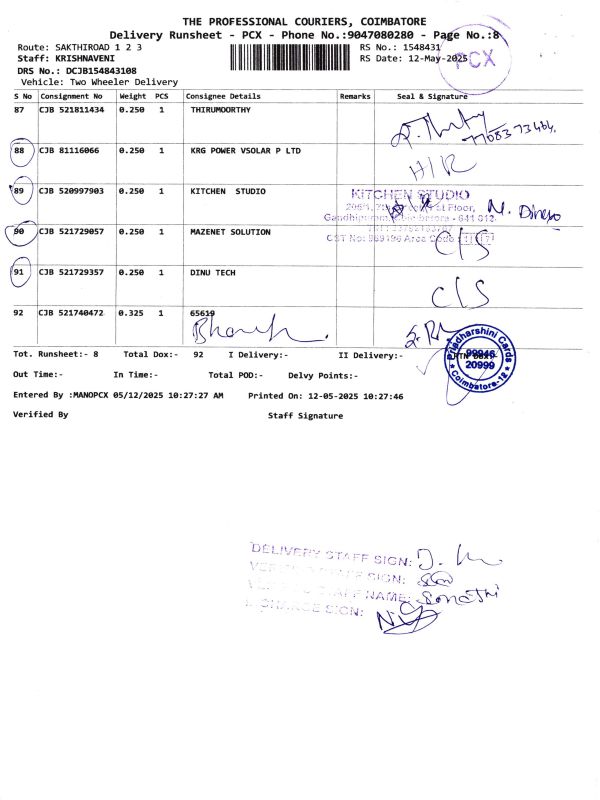 THE PROFESSIONAL COURIERS, COIMBATORE
Delivery Runsheet - PCX - Phone No.:9047080280 - Page No.:8
Route: SAKTHIROAD 1 2 3
RS No.: 1548431
Staff: KRISHNAVENI
RS Date: 12-May-2025
PCX
DRS No.: DCJB154843108
Vehicle: Two Wheeler Delivery
S No Consignment No Weight PCS Consignee Details Remarks Seal & Signature
87 CJB 521811434 0.250 1 THIRUMOORTHY
88 CJB 81116066 0.250 1 KRG POWER VSOLAR P LTD H/R
89 CJB 520997903 0.250 1 KITCHEN STUDIO
KITCHEN STUDIO
M. Dinesh
90 CJB 521729057 0.250 1 MAZENET SOLUTION C/S
91 CJB 521729357 0.250 1 DINU TECH C/S
92 CJB 521740472 0.325 1 65619
Priedharshini Cards
20999
Coimbatore-12
Tot. Runsheet:- 8 Total Dox:- 92 I Delivery:- II Delivery:-
Out Time:- In Time:- Total POD:- Delvy Points:-
Entered By :MANOPCX 05/12/2025 10:27:27 AM Printed On: 12-05-2025 10:27:46
Verified By Staff Signature
DELIVERY STAFF SIGN:
STAFF SIGN:
STAFF NAME:
SIGN: